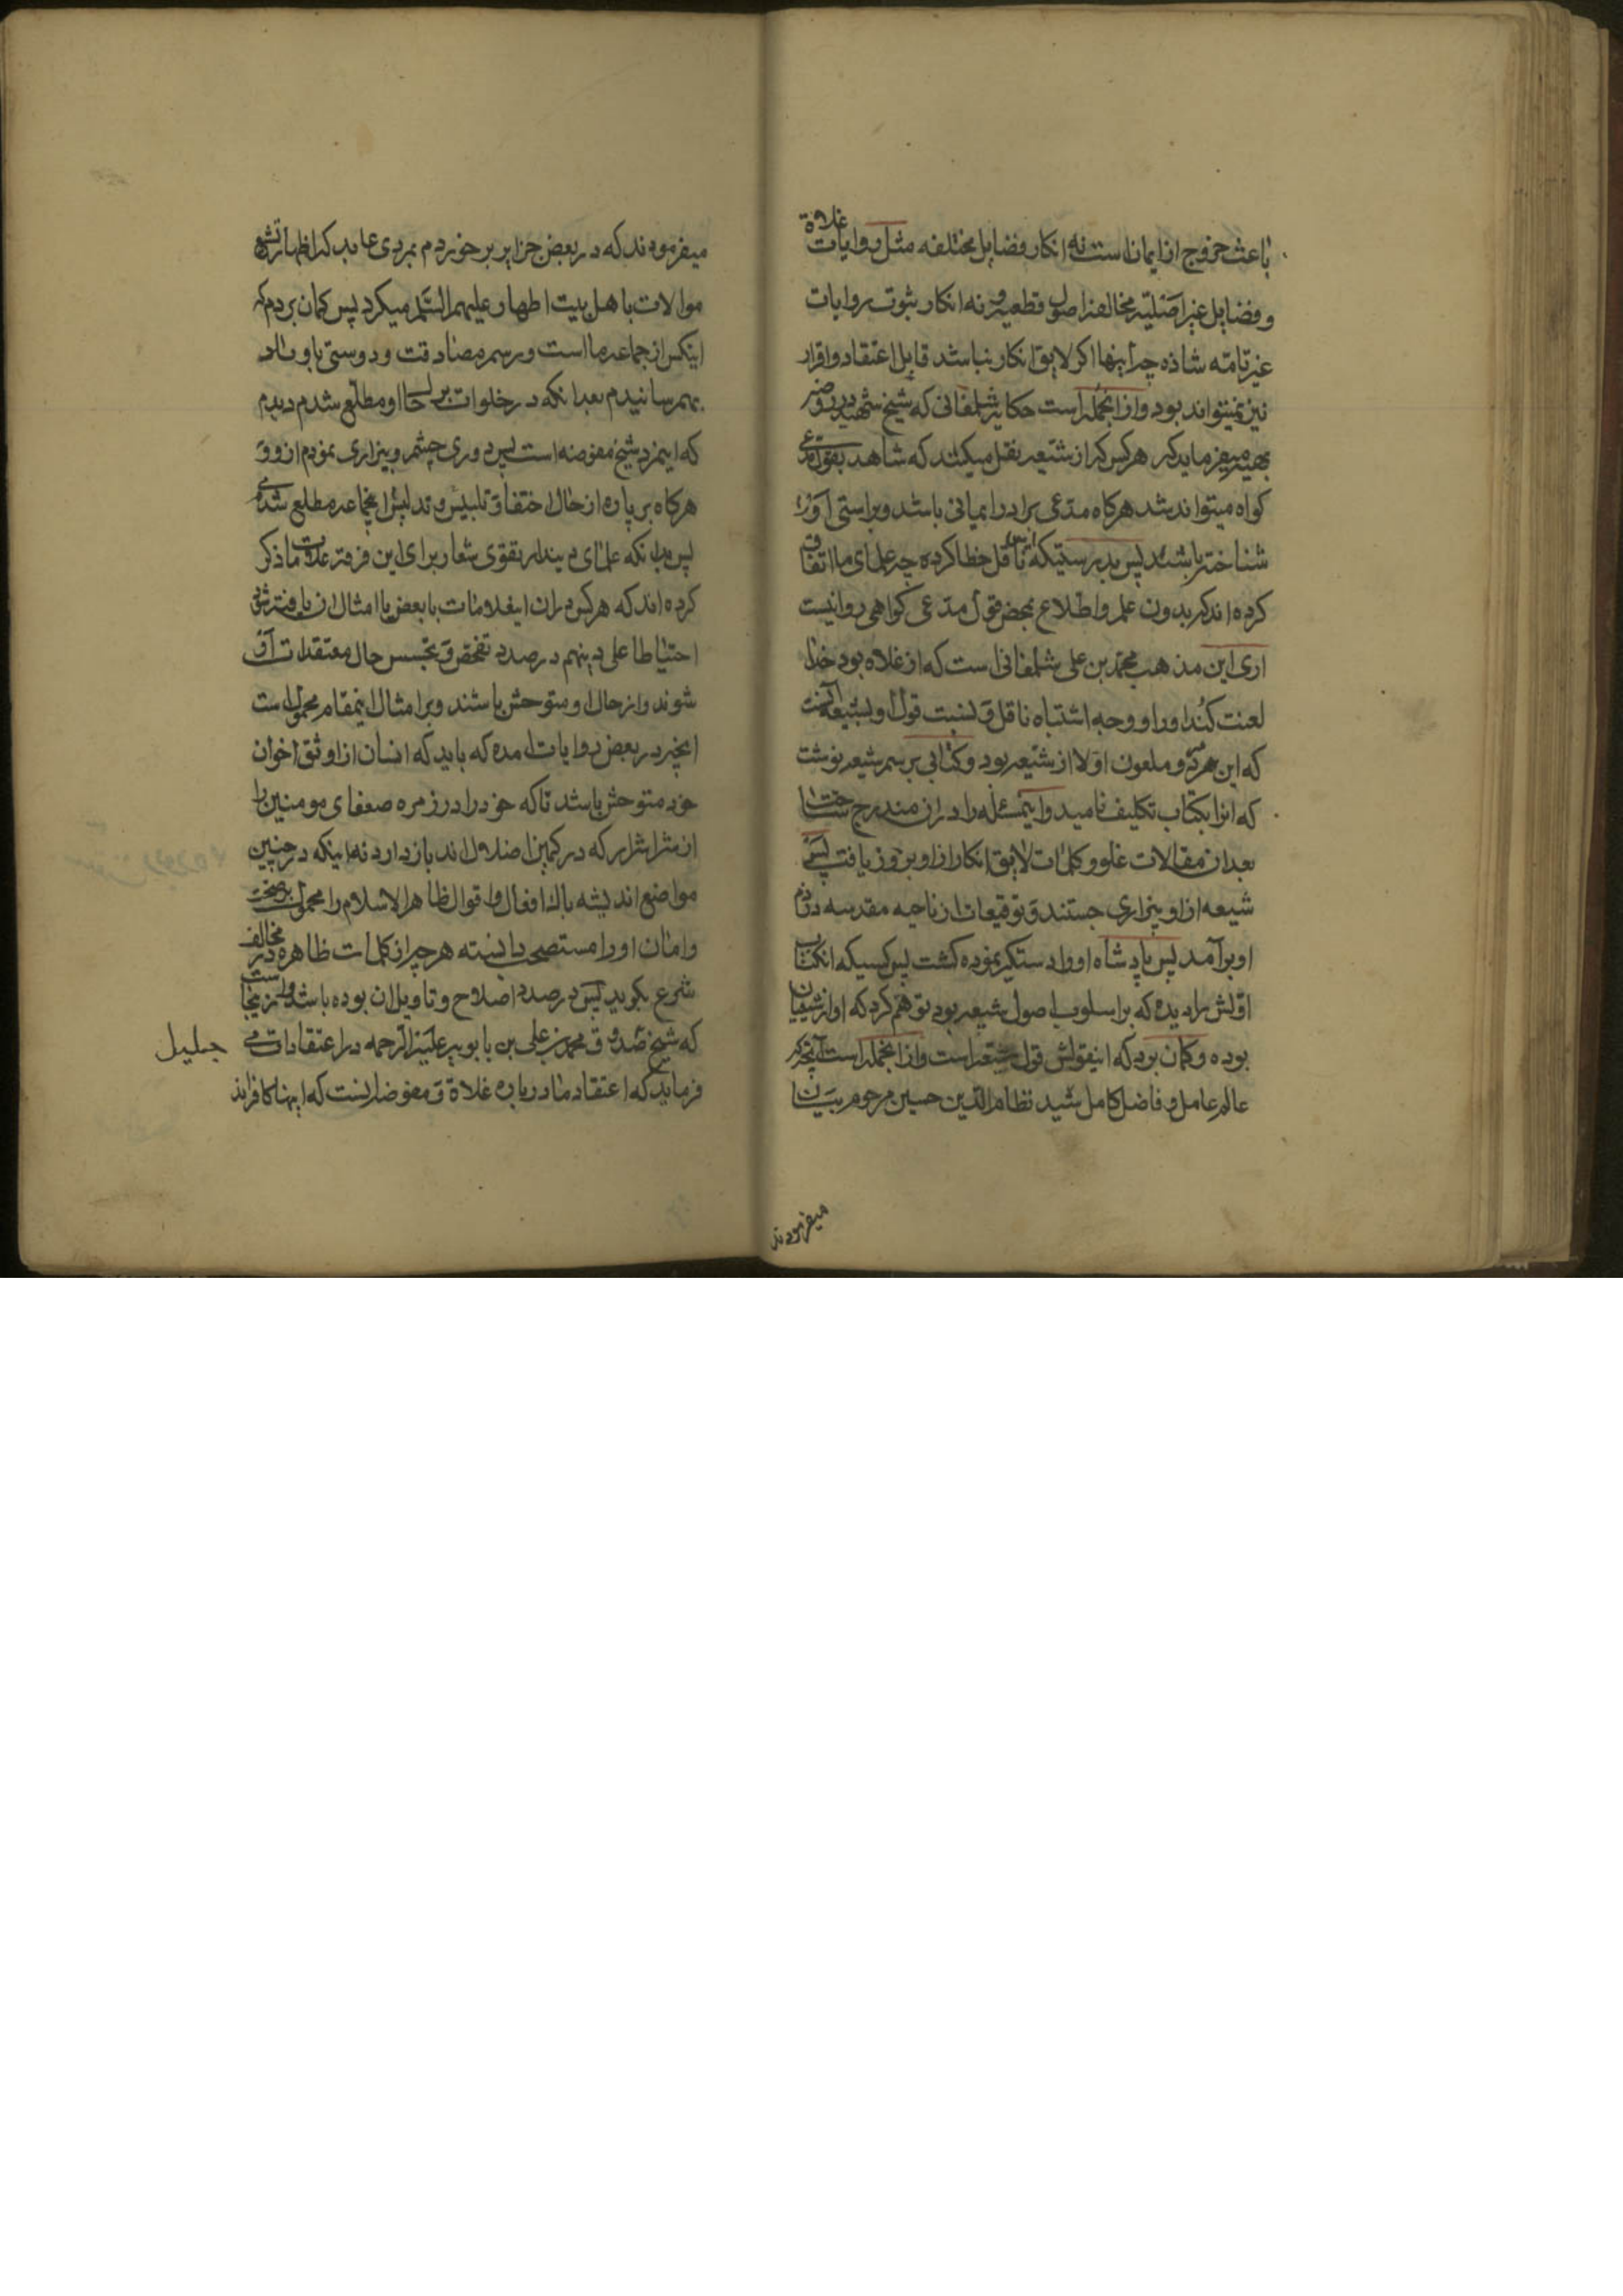 باعث خروج از ایمانست نه انکار فضایل مختلفه مثل روایات غلاة
و فضایل غیر اصلیّه مخالفه اصول قطعیه و نه انکار ثبوت روایات
غیر تامّه شاذه چه اینها اکر لایق انکار نباشد قابل اعتقاد و اقرار
نیز نمیتواند بود و از انجمله است حکایة شلمغانی که شیخ شهید در روضه
بهیه میفرماید که هر کس که از شیعه نقل میکند که شاهد بقول مدعی
کواه میتواند شد هرکاه مدعی برادر ایمانی باشد و براستی او را
شناخته باشد پس بدرستیکه این ناقل خطا کرده چه علمای ما اتفاق
کرده اند که بدون علم و اطلاع بمحض قول مدعی کواهی روا نیست
اری این مذهب محمد بن علی شلمغانی است که از غلاه بود خدا
لعنت کند او را و وجه اشتباه ناقل و نسبت قول او بشیعه آنست
که این مرد و ملعون اولا از شیعه بود و کتابی برسم شیعه نوشت
که انرا بکتاب تکلیف نامید و اینمسئله را در ان مندرج ساخت
بعد از ان مقالات غلو و کلمات لایق انکار از او بروز یافت پس
شیعه از او بیزاری جستند و توقیعات از ناحیه مقدسه در ذم
او برآمد پس پادشاه او را دستکیر نموده کشت پس کسیکه انکتاب
اولش را دیده که بر اسلوب اصول شیعه بود توهم کرد که او از شیعیان
بوده و کمان برد که اینقولش قول شیعه است و از انجمله است آنچه که
عالم عامل و فاضل کامل سید نظام الدین حسین مرحوم
میفرمودند
میفرمودند که در بعض جزایر برخوردم بمردی عابد که اظهار تشیع
موالات با اهل بیت اطهار علیهم السّلم میکرد پس کمان بردم که
اینکس از جماعه ما است و رسم مصادقت و دوستی باو
بهم رسانیدم بعد انکه در خلوات بر حال او مطلع شدم دیدم
که اینمرد شیخ مفوضه است پس دوری جستم و بیزاری نمودم از او و
هرکاه بر پاره از حال اختفا و تلبیس و تدلیس اینجماعه مطلع شدی
پس بدانکه علمای دیندار تقوی شعار برای این فرقه علامات ما ذکر
کرده اند که هر کس در ان اینعلامات یا بعض یا امثال ان یافته شود
احتیاطا علی دینهم در صدد تفحص و تجسس حال معتقدات او
شوند و از حال او متوحش باشند و بر امثال اینمقام محمول است
انچه در بعض روایات امده که باید که انسان از اوثق اخوان
خود متوحش باشد تا که خود را در زمره ضعفای مومنین را
از شر اشرار که در کمین اضلال اند باز دارد نه اینکه در چنین
مواضع اندیشه باک افعال و اقوال ظاهر الاسلام را محمول بر صحت
و امان او را مستصحب دانسته هر چه از کلمات ظاهره در مخالف
شرع بکوید پس در صدد اصلاح و تاویل ان بوده باشد و از اینجا است
که شیخ صدوق محمد بن علی بن بابویه علیه الرحمه در اعتقادات می
جلیل
فرماید که اعتقاد ما درباره غلاة و مفوضه اینست که اینها کافرانند